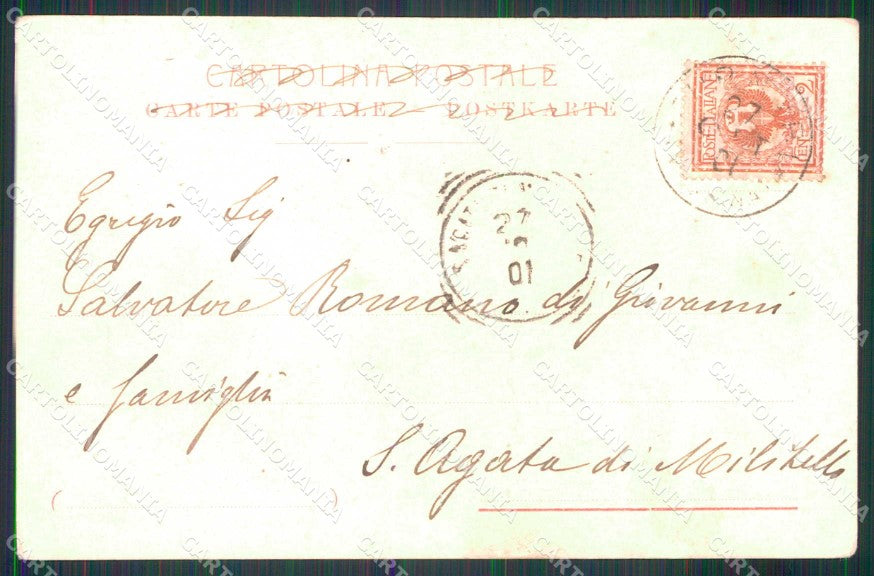 CARTOLINA POSTALE
CARTE POSTALE - POSTKARTE
POSTE ITALIANE
2
Egregio Sig
Salvatore Romano di Giovanni
e famiglia
S. Agata di Militello
27
01
CARTOLINOMANIA